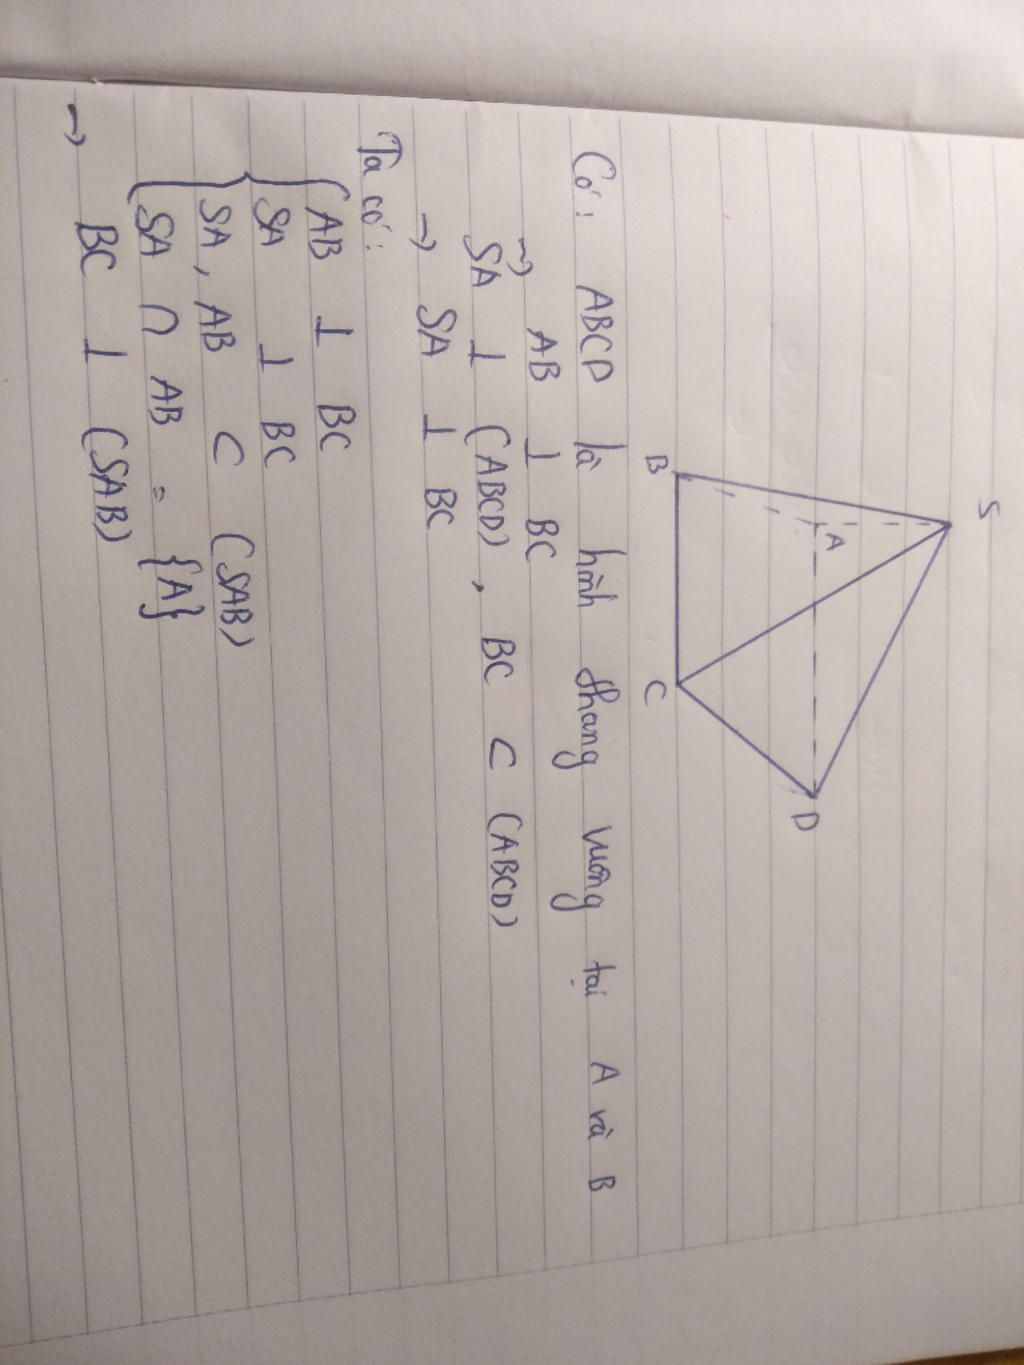 S
A
D
B
C
Có: ABCD là hình thang vuông tại A và B
→ AB ⊥ BC
SA ⊥ (ABCD), BC ⊂ (ABCD)
→ SA ⊥ BC
Ta có:
{ AB ⊥ BC
SA ⊥ BC
SA, AB ⊂ (SAB)
SA ∩ AB = {A}
→ BC ⊥ (SAB)